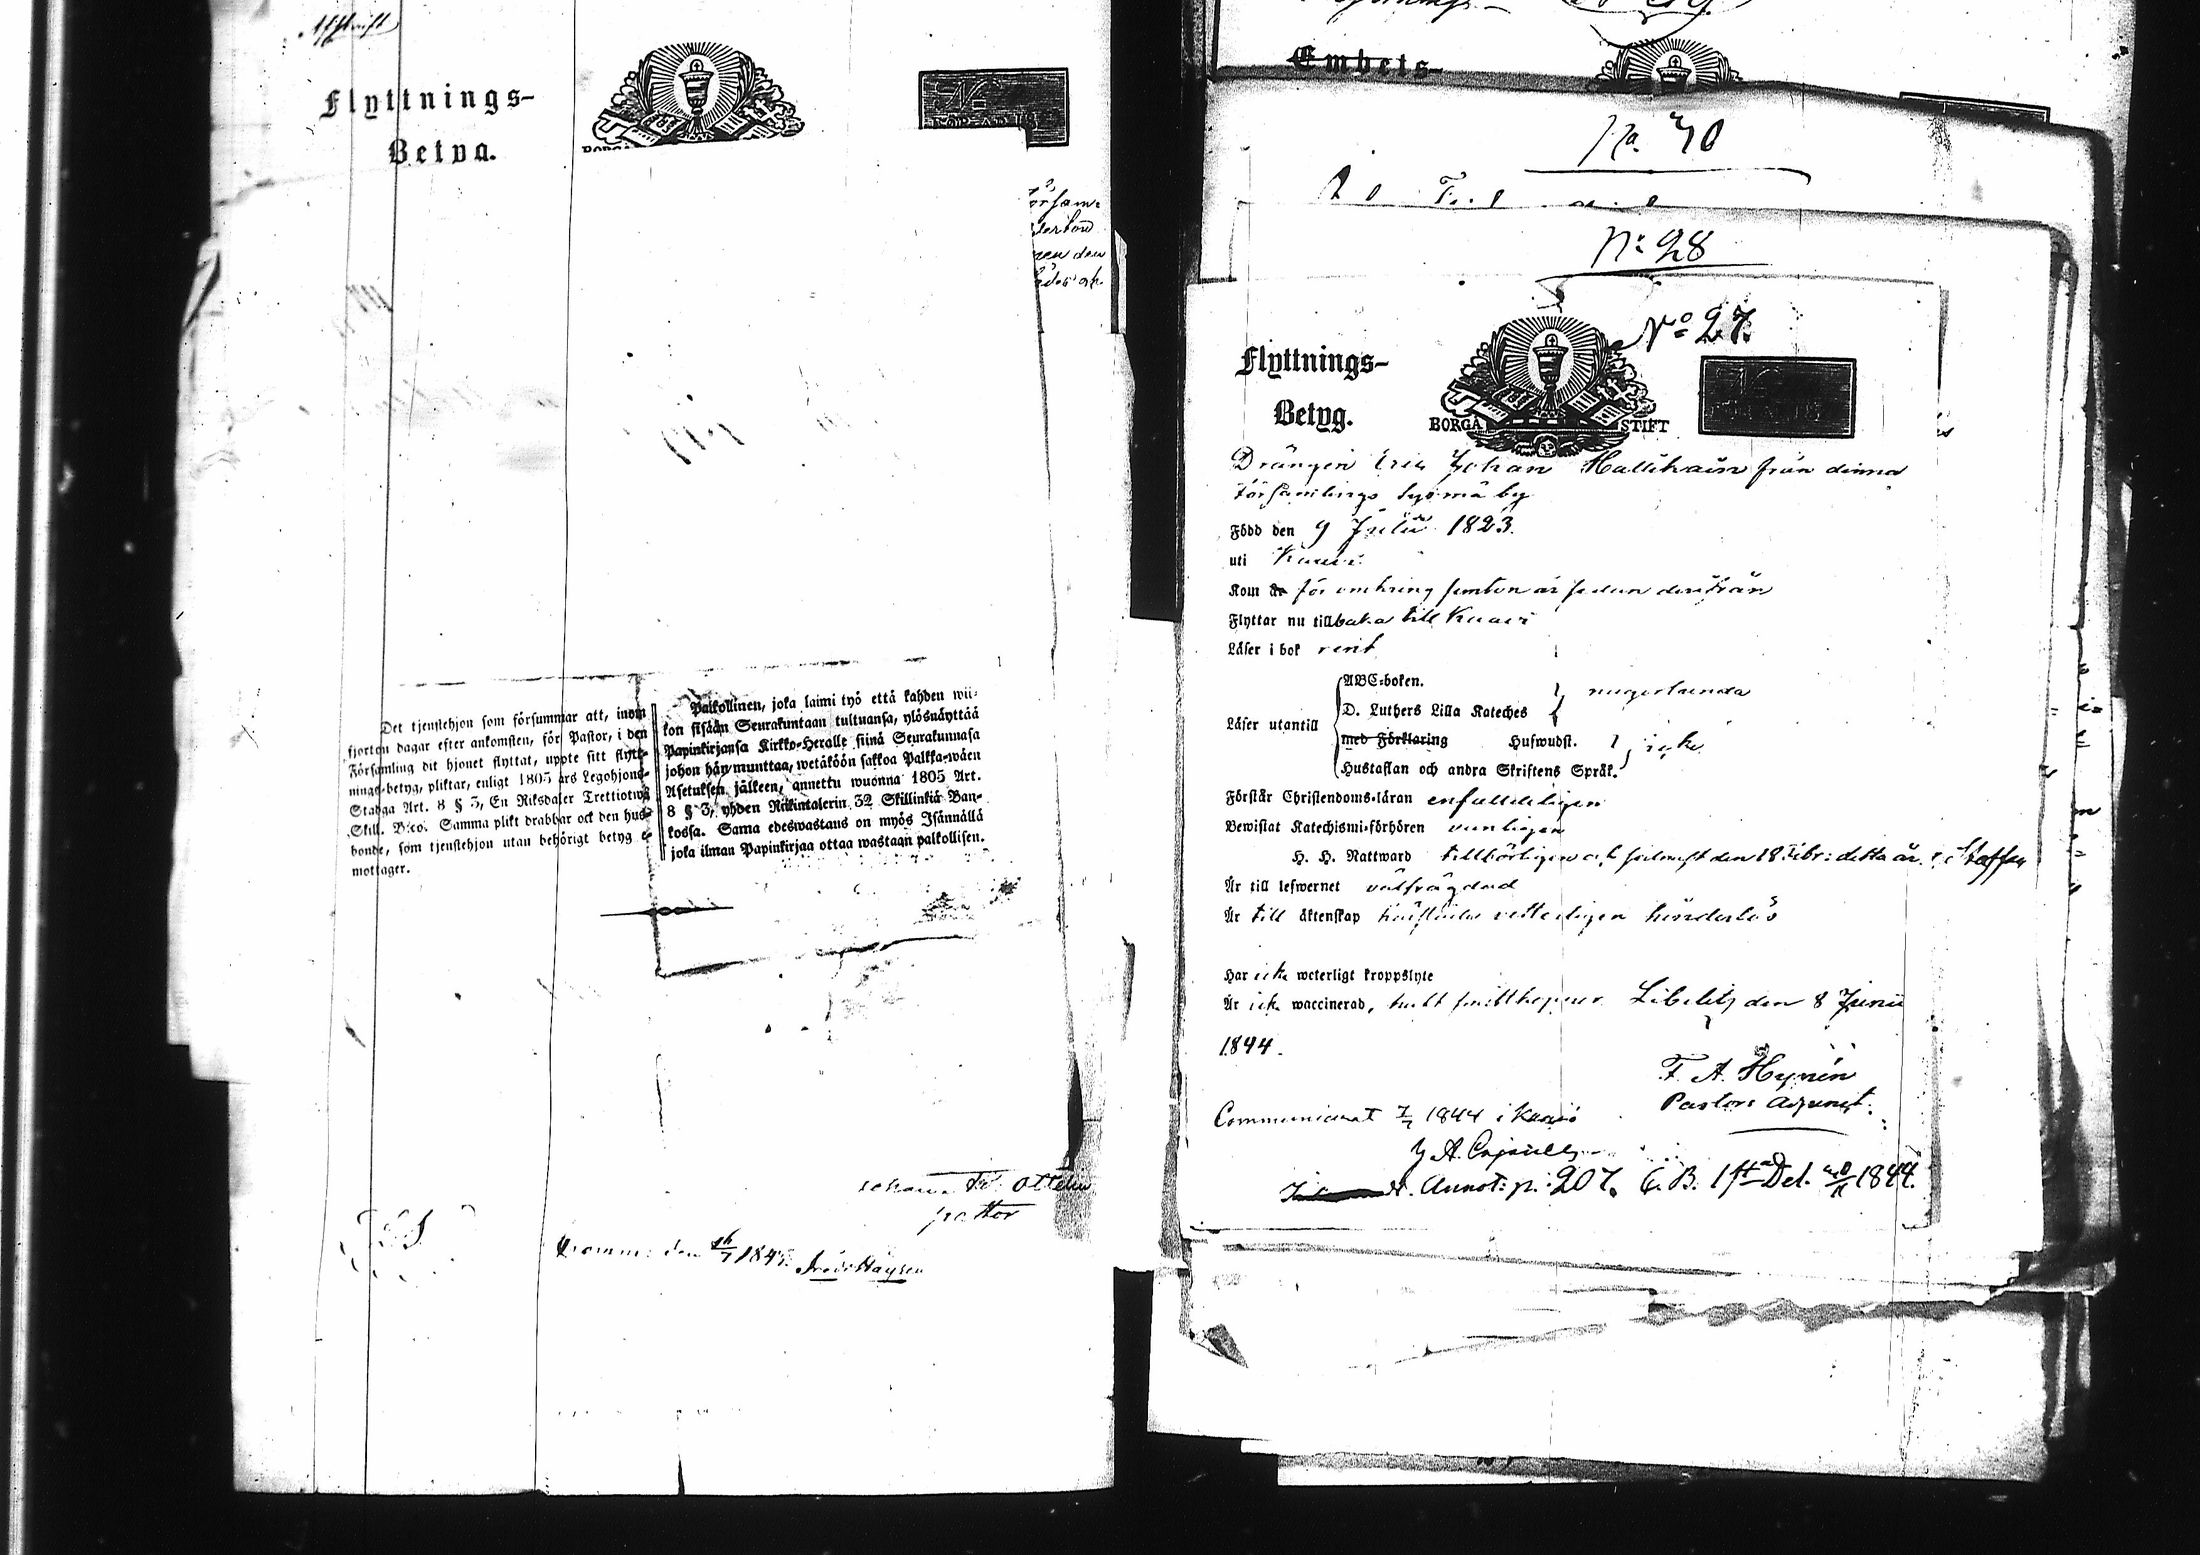 Afskrift
Flyttnings-
Betyg.
församl
den
Det tjenstehjon som försummar att, inom
fjorton dagar efter ankomsten, för Pastor, i den
Församling dit hjonet flyttat, uppte sitt flytt-
nings-betyg, pliktar, enligt 1805 års Legohjons-
Stadga Art. 8 § 3, En Riksdaler Trettiotwå
Skill. B:co. Samma plikt drabbar ock den hus-
bonde, som tjenstehjon utan behörigt betyg e-
mottager.
Palkollinen, joka laimi lyö että kahden wii-
kon sisään Seurakuntaan tultuansa, ylösnäyttää
Papinkirjansa Kirkko-Heralle siinä Seurakunnasa
johon hän munttaa, wetäköön sakkoa Palkka-wäen
Asetuksen jälkeen, annettu wuonna 1805 Art.
8 § 3, yhden Riikintalerin 32 Skillinkiä Ban-
kossa. Sama edeswastaus on myös Isännällä
joka ilman Papinkirjaa ottaa wastaan palkollisen.
Johan Fr.
pastor
den 16/7 184
Embets-
No. 70
No. 28
No. 27.
Flyttnings-
Betyg.
BORGÅ STIFT
Drängen Eric Johan Hallikain från denna
Församlings Sysmä by
Född den 9 Julii 1823.
uti Kaavi
Kom år för omkring femton år sedan derifrån
Flyttar nu tillbaka till Kaavi
Läser i bok rent
ABC-boken.
D. Luthers Lilla Kateches nugorlunda
Läser utantill
med Förklaring Hufwudst.
icke
Hustaflan och andra Skriftens Språk.
Förstår Christendoms-läran enfalldeligen
Bewistat Katechismi-förhören vanligen
H. H. Nattward tillbörligen och sednast den 18 Febr: detta år
Är till lefwernet välfrägdad
Är till äktenskap hinderlös
Har icke weterligt kroppslyte
Är icke waccinerad, haft smittkoppor. Libelitz den 8 Junii
1844.
F. A. Hynén
Pastors Adjunct.
Communicerat 7/7 1844 i Kaavi
Annot: p: 207. C. B. 1sta Del. 1844.